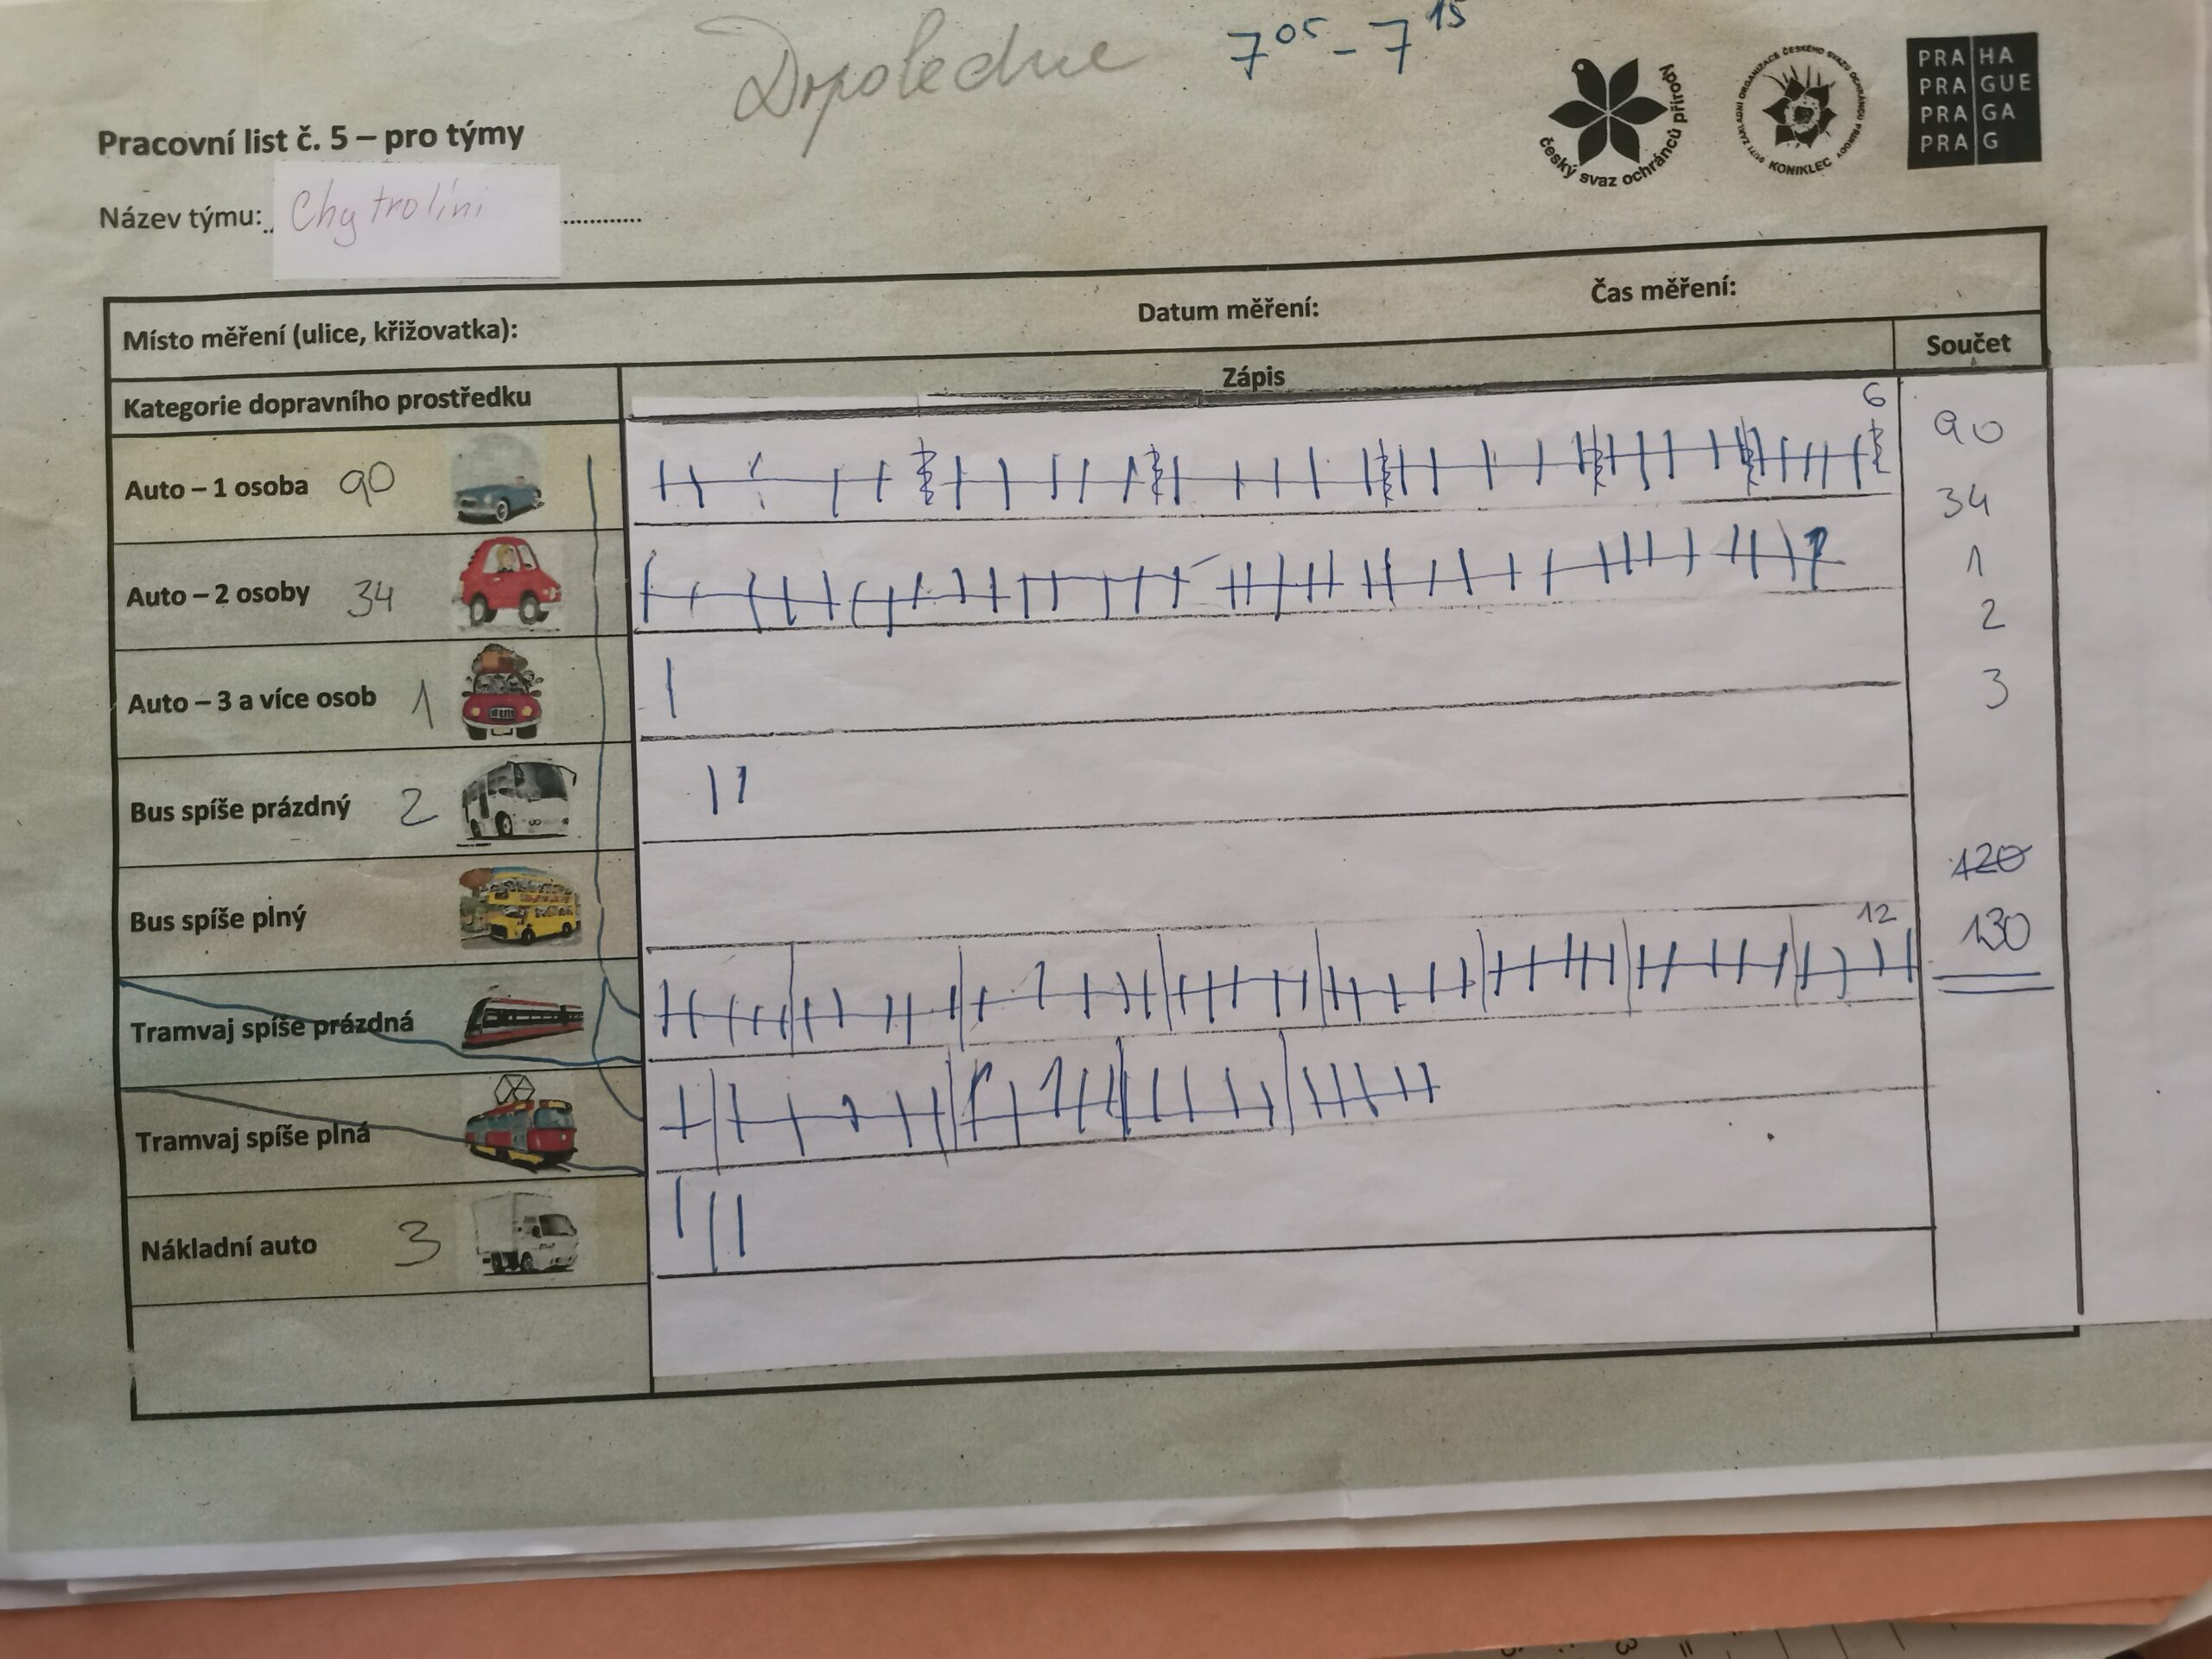 Dopoledne 7⁰⁵ - 7¹⁵
Pracovní list č. 5 – pro týmy
Název týmu: Chytrolíni
český svaz ochránců přírody
KONIKLEC
PRA HA
PRA GUE
PRA GA
PRA G
Místo měření (ulice, křižovatka): Datum měření: Čas měření:
Kategorie dopravního prostředku Zápis Součet
6
Auto – 1 osoba 90 90
Auto – 2 osoby 34 34
Auto – 3 a více osob 1 1
Bus spíše prázdný 2 2
3
Bus spíše plný 120
12
130
Tramvaj spíše prázdná
Tramvaj spíše plná
Nákladní auto 3